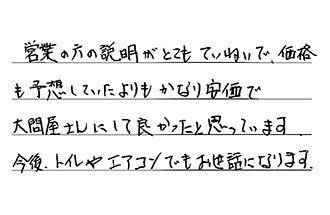 営業の方の説明がとてもていねいで、価格
も予想していたよりもかなり安価で
大問屋さんにして良かったと思っています.
今後、トイレやエアコンでもお世話になります.